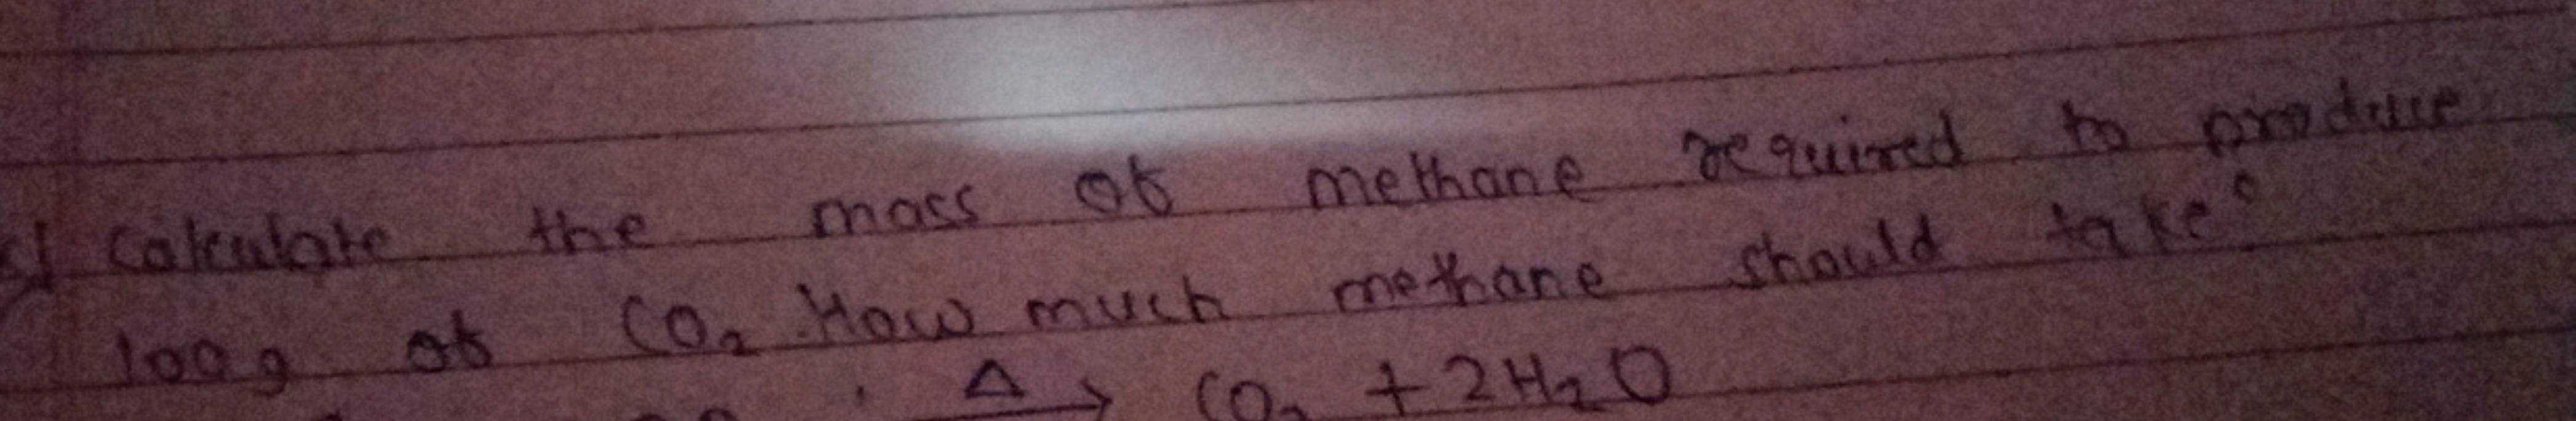 Calculate the mass of methane required to produce
100g of CO2. How much methane should take?
Δ → CO2 + 2H2O